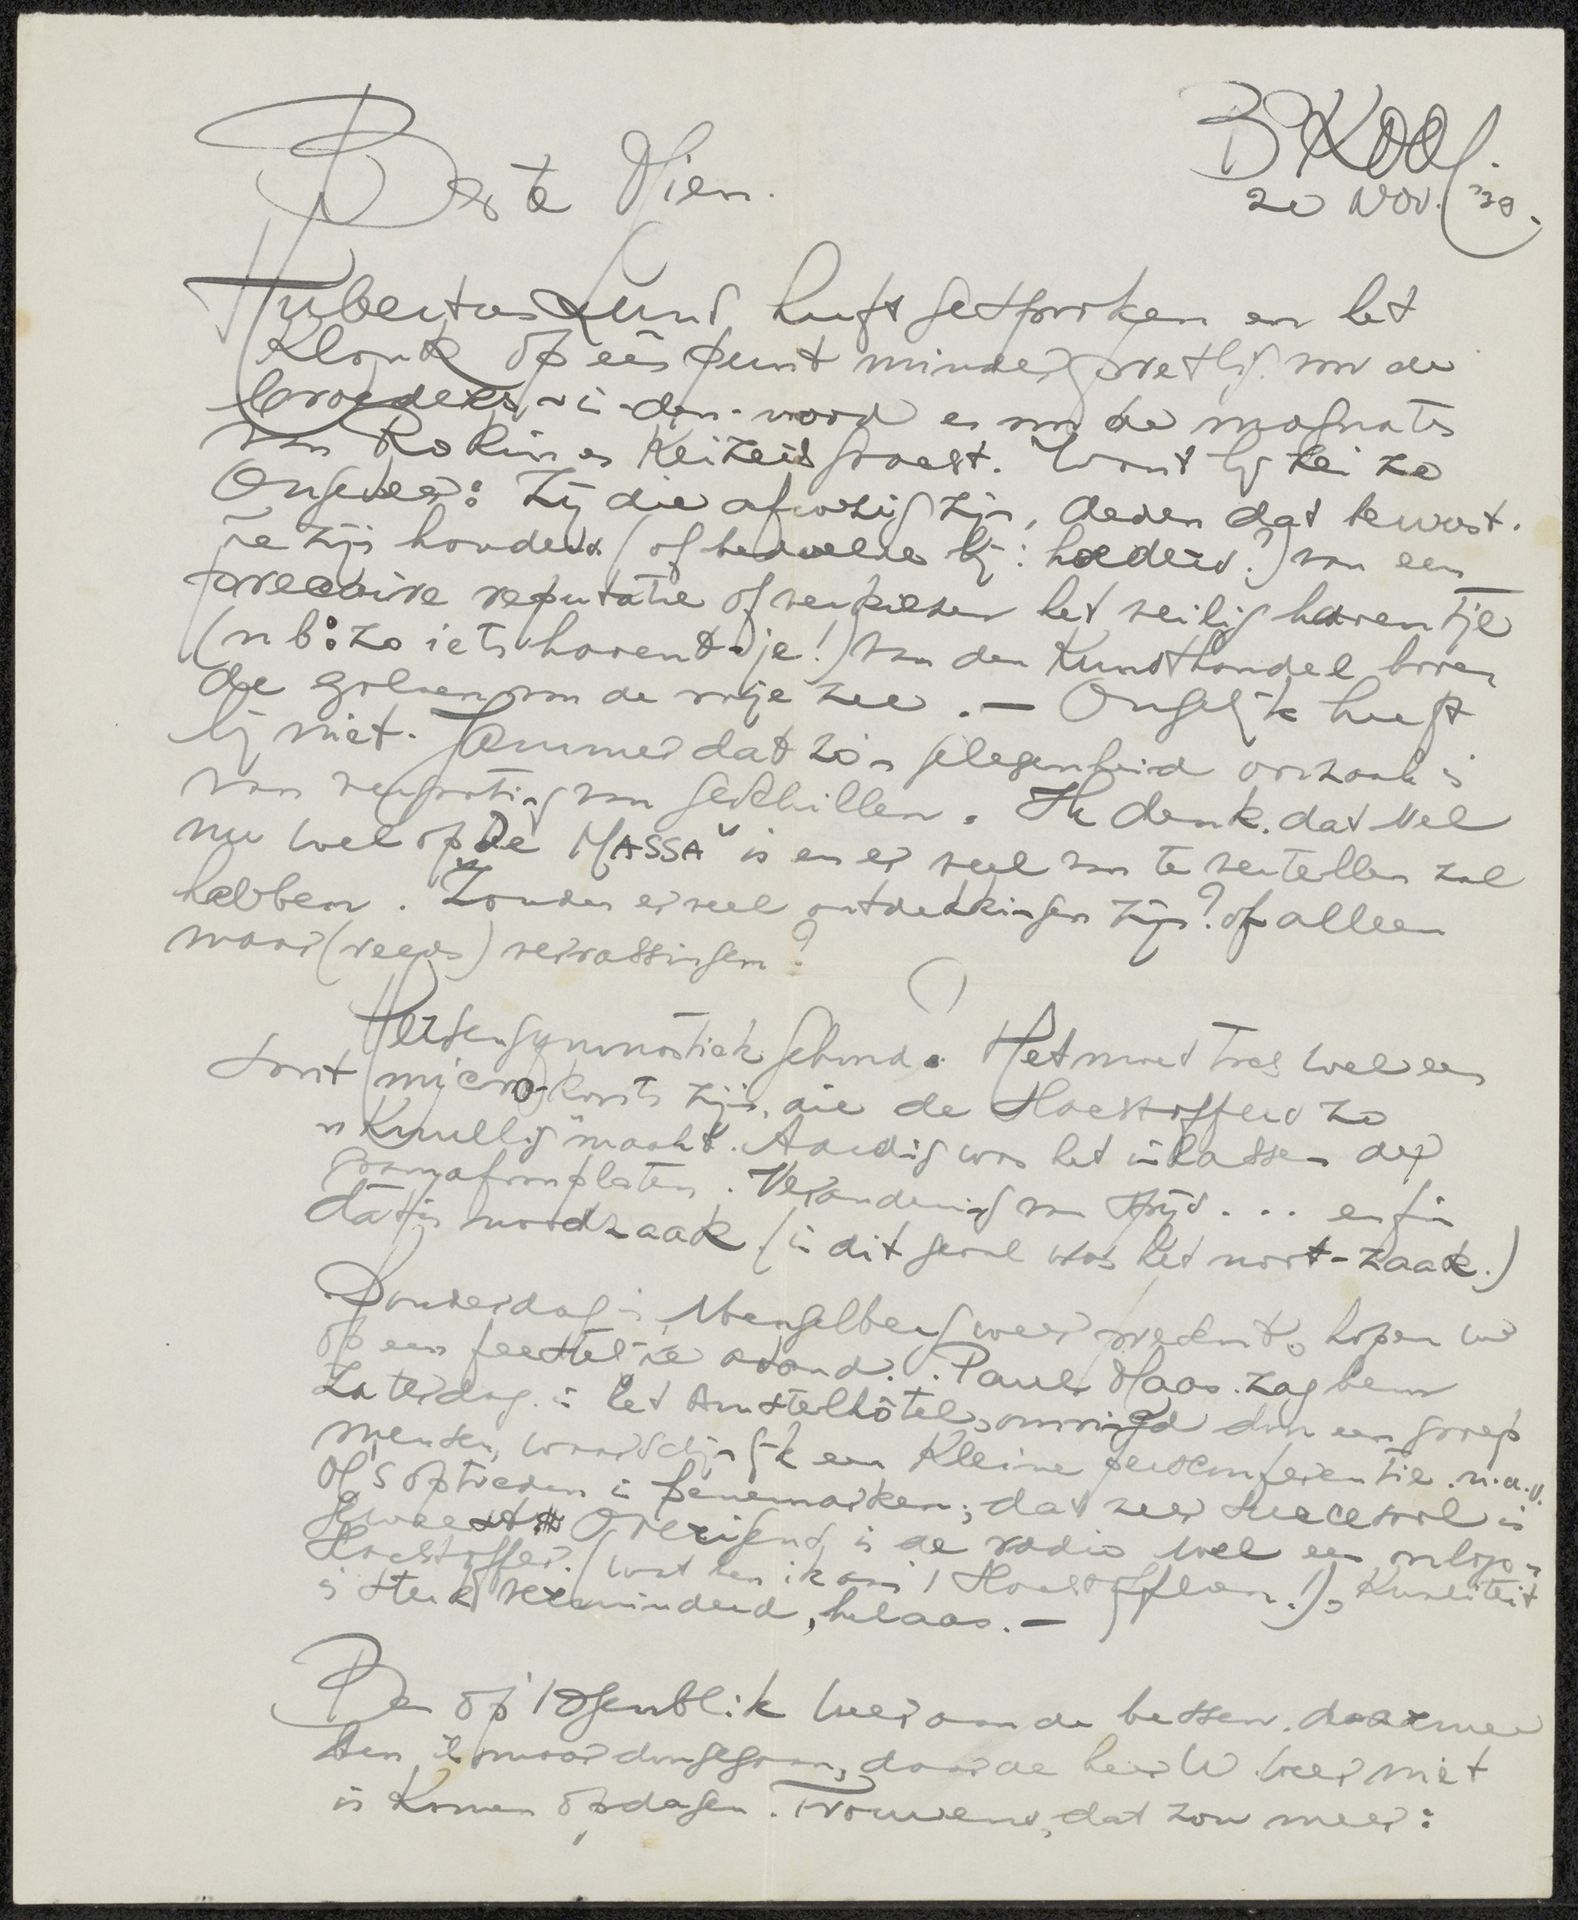 BKOOL.
20 Nov. '38.
Beste Mien.
Hubertus Lund heeft gesproken en het
klonk op één punt minder prettig voor de
broeders-in-den-nood en voor de magnaten
van Rokin en Keizersgracht. Want hij zei zo
Ongeveer: Zij die afwezig zijn, deden dat bewust.
ze zijn houders (of bedoelde hij: hoeders?) van een
precaire reputatie of verkiezen het veilig haventje
(n b: zo iets haventje!) van den Kunsthandel boven
de golven van de vrije zee. — Ongelijk heeft
hij niet. Jammer dat zo'n gelegenheid oorzaak is
van vergroting van geschillen. Ik denk dat Nel
nu wel op "De MASSA" is en er veel van te vertellen zal
hebben. Zouden er veel ontdekkingen zijn? of alleen
maar (reeds) verrassingen?
Hersengymnastiek gehoord. Het moet toch wel een
soort micro-koorts zijn, die de Haestoffers zo
"knullig" maakt. Aardig was het inlassen der
gramafoonplaten. Verandering van spijs... enfin
dat is noodzaak (in dit geval was het noot-zaak.)
Donderdag is Mengelberg weer present, hopen we
op een feestelijke avond. Paul Maas zag hem
Zaterdag in het Amstelhôtel, omringd door een groep
mensen, waarschijnlijk een kleine persconferentie n.a.v.
z'n optreden in Denemarken, dat zeer succesvol is
geweest. Overigens is de radio wel een onlopen
Haestoffer. (wat ben ik an! Haestofferen!), Kwaliteit
is sterk verminderd, helaas. —
Ben op 't ogenblik weer aan de bessen. daarmee
ben ik maar doorgegaan, daar de heer W. weer niet
is komen opdagen. Trouwens, dat zou meer: